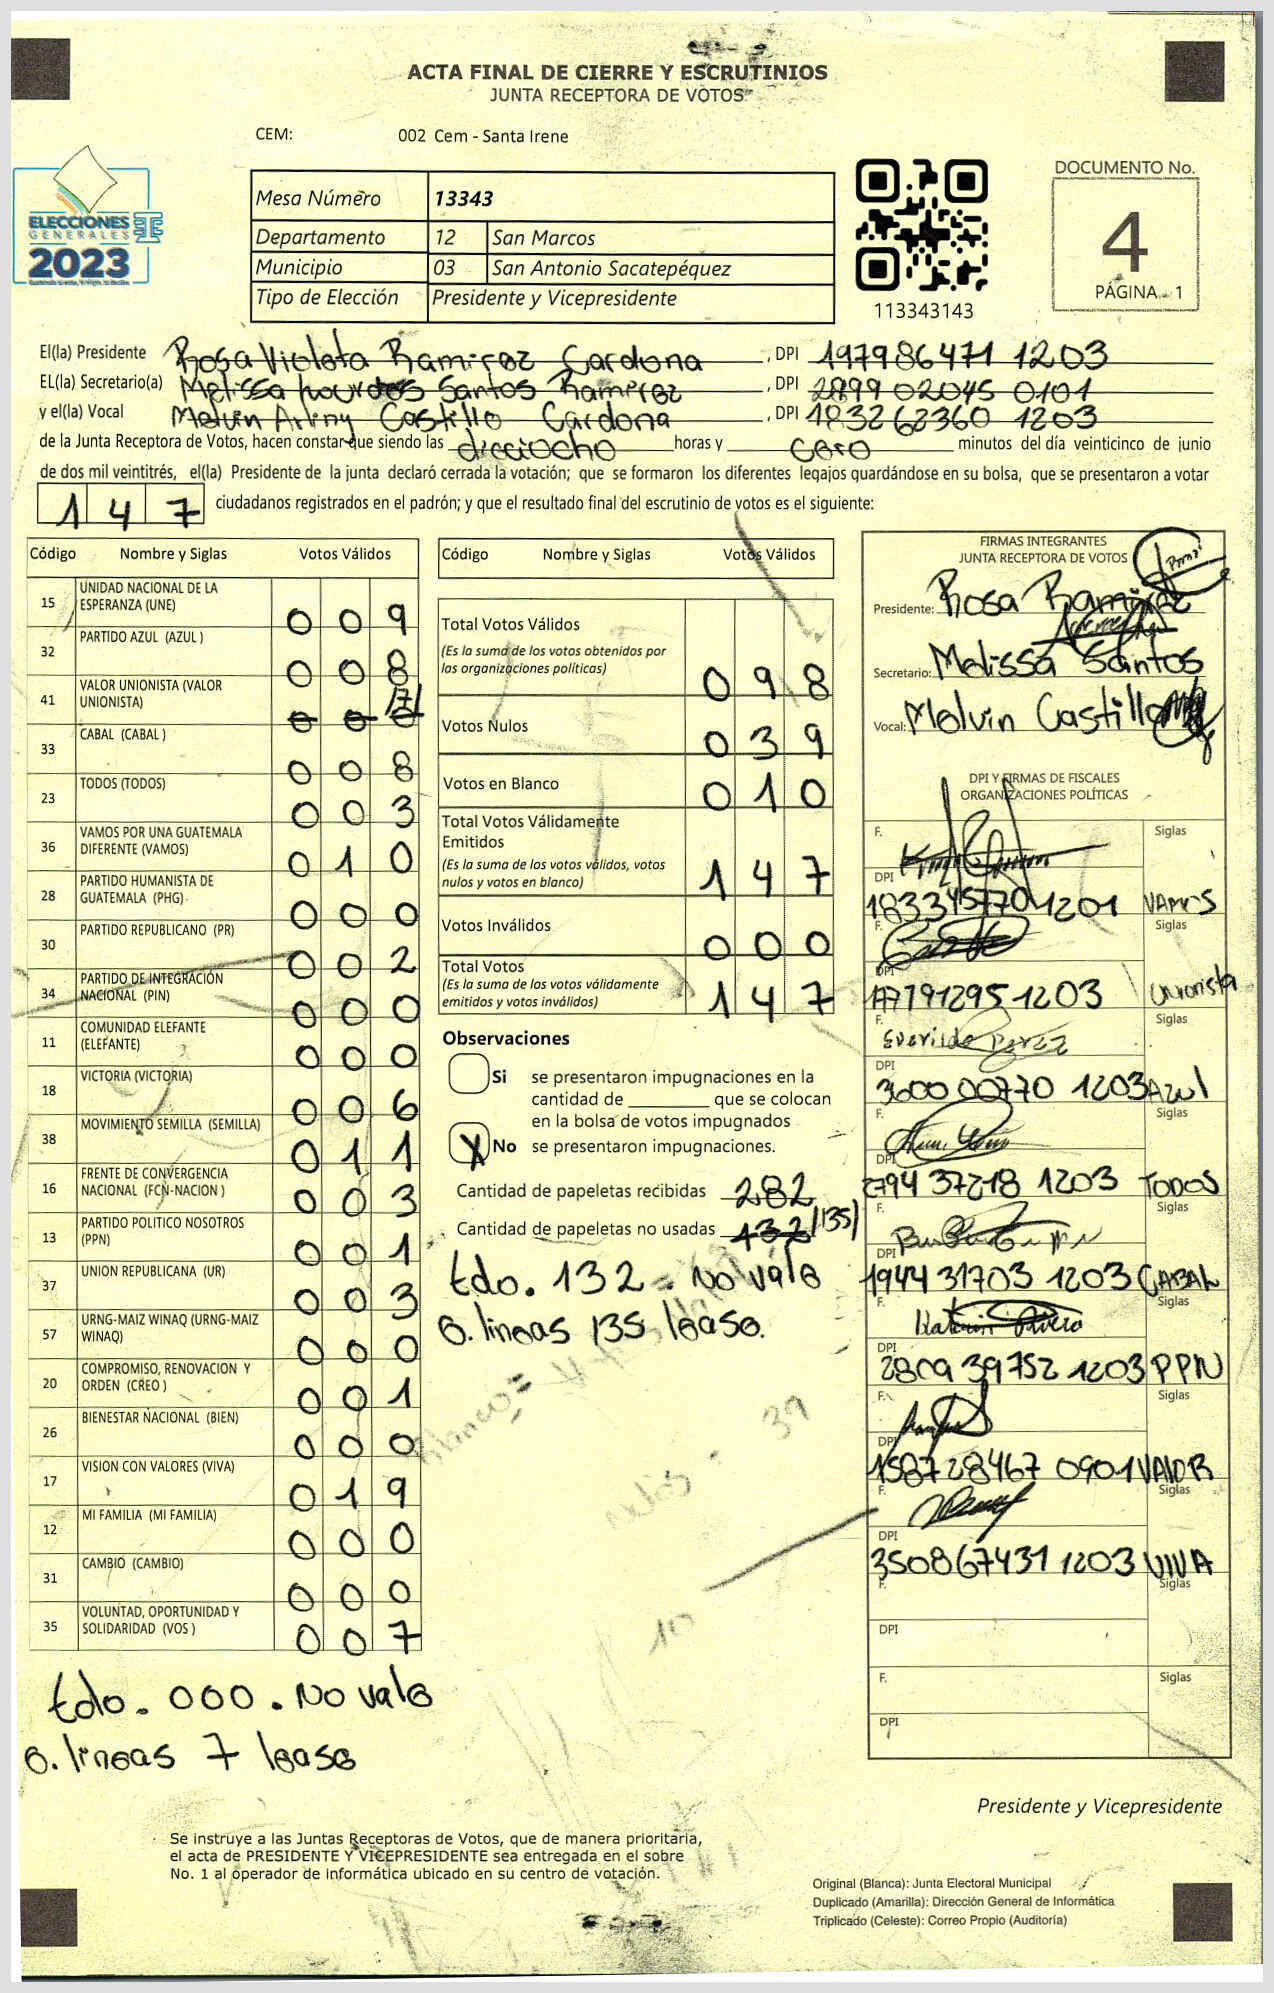 ACTA FINAL DE CIERRE Y ESCRUTINIOS
JUNTA RECEPTORA DE VOTOS
CEM: 002 Cem - Santa Irene
ELECCIONES
GENERALES
2023
Mesa Número 13343
Departamento 12 San Marcos
Municipio 03 San Antonio Sacatepéquez
Tipo de Elección Presidente y Vicepresidente
113343143
DOCUMENTO No.
4
PÁGINA 1
El(la) Presidente Rosa Violeta Ramirez Cardona, DPI 197986471 1203
EL(la) Secretario(a) Melissa Lourdes Santos Ramirez, DPI 2899 02045 0101
y el(la) Vocal Melvin Arliny Castillo Cardona, DPI 183262360 1203
de la Junta Receptora de Votos, hacen constar que siendo las dieciocho horas y cero minutos del día veinticinco de junio
de dos mil veintitrés, el(la) Presidente de la junta declaró cerrada la votación; que se formaron los diferentes legajos guardándose en su bolsa, que se presentaron a votar
1 4 7 ciudadanos registrados en el padrón; y que el resultado final del escrutinio de votos es el siguiente:
Código Nombre y Siglas Votos Válidos
15 UNIDAD NACIONAL DE LA ESPERANZA (UNE) 0 0 9
32 PARTIDO AZUL (AZUL ) 0 0 8
41 VALOR UNIONISTA (VALOR UNIONISTA) 0 0 0 /7/
33 CABAL (CABAL ) 0 0 8
23 TODOS (TODOS) 0 0 3
36 VAMOS POR UNA GUATEMALA DIFERENTE (VAMOS) 0 1 0
28 PARTIDO HUMANISTA DE GUATEMALA (PHG) 0 0 0
30 PARTIDO REPUBLICANO (PR) 0 0 2
34 PARTIDO DE INTEGRACIÓN NACIONAL (PIN) 0 0 0
11 COMUNIDAD ELEFANTE (ELEFANTE) 0 0 0
18 VICTORIA (VICTORIA) 0 0 6
38 MOVIMIENTO SEMILLA (SEMILLA) 0 1 1
16 FRENTE DE CONVERGENCIA NACIONAL (FCN-NACION ) 0 0 3
13 PARTIDO POLITICO NOSOTROS (PPN) 0 0 1
37 UNION REPUBLICANA (UR) 0 0 3
57 URNG-MAIZ WINAQ (URNG-MAIZ WINAQ) 0 0 0
20 COMPROMISO, RENOVACION Y ORDEN (CREO ) 0 0 1
26 BIENESTAR NACIONAL (BIEN) 0 0 0
17 VISION CON VALORES (VIVA) 0 1 9
12 MI FAMILIA (MI FAMILIA) 0 0 0
31 CAMBIO (CAMBIO) 0 0 0
35 VOLUNTAD, OPORTUNIDAD Y SOLIDARIDAD (VOS ) 0 0 7
tdo. 000. No vale
e. lineas 7 lease
Código Nombre y Siglas Votos Válidos
Total Votos Válidos
(Es la suma de los votos obtenidos por
las organizaciones políticas) 0 9 8
Votos Nulos 0 3 9
Votos en Blanco 0 1 0
Total Votos Válidamente
Emitidos
(Es la suma de los votos válidos, votos
nulos y votos en blanco) 1 4 7
Votos Inválidos 0 0 0
Total Votos
(Es la suma de los votos válidamente
emitidos y votos inválidos) 1 4 7
Observaciones
Si se presentaron impugnaciones en la
cantidad de ________ que se colocan
en la bolsa de votos impugnados
X No se presentaron impugnaciones.
Cantidad de papeletas recibidas 282
Cantidad de papeletas no usadas 132 /135/
tdo. 132 = No vale
e. lineas 135 lease.
39
10
FIRMAS INTEGRANTES
JUNTA RECEPTORA DE VOTOS
Presidente: Rosa Ramirez
Secretario: Melissa Santos
Vocal: Melvin Castillo
DPI Y FIRMAS DE FISCALES
ORGANIZACIONES POLÍTICAS
F. Siglas
DPI 183345770 1201 VAMOS
F. Siglas
DPI 177912951203 Unionista
F. Everildo Perez Siglas
DPI 3600 00770 1203 Azul
F. Siglas
DPI 2794 37218 1203 TODOS
F. Siglas
DPI 1944 31703 1203 CABAL
F. Siglas
DPI 2809 39752 1203 PPN
F. Siglas
DPI 1587 28467 0901 VALOR
F. Siglas
DPI 350867431 1203 VIVA
F. Siglas
DPI
F. Siglas
DPI
Presidente y Vicepresidente
Se instruye a las Juntas Receptoras de Votos, que de manera prioritaria,
el acta de PRESIDENTE Y VICEPRESIDENTE sea entregada en el sobre
No. 1 al operador de informática ubicado en su centro de votación.
Original (Blanca): Junta Electoral Municipal
Duplicado (Amarilla): Dirección General de Informática
Triplicado (Celeste): Correo Propio (Auditoría)